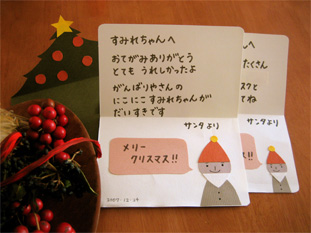 すみれちゃんへ
おてがみありがとう
とても うれしかったよ
がんばりやさんの
にこにこすみれちゃんが
だいすきです
サンタより
メリー
クリスマス!!
んへ
たくさん
スクと
てね
サンタより